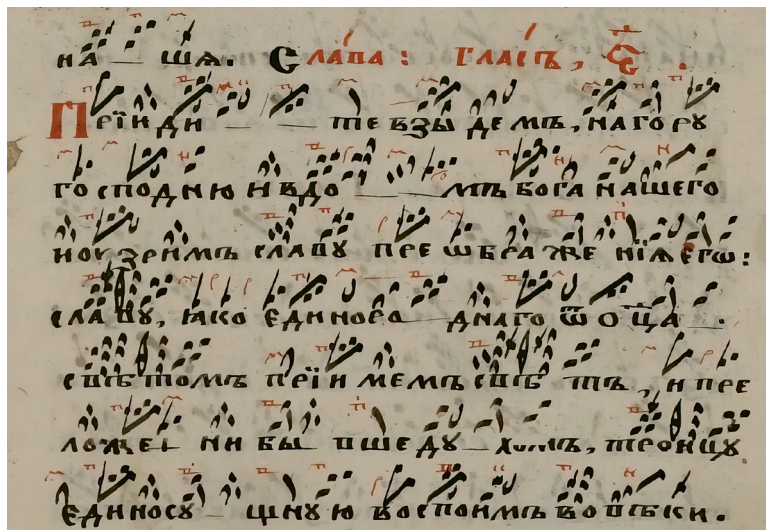 на шѧ. Слава: Гласъ, ѕ҃.
Прїиди те взы демъ, на гору
господню и въ до мъ бога нашего
но узримъ славу преѡбра же нїѧ егѡ:
славу, ꙗко единоро днаго ѿ ѻц҃а.
свѣтомъ прїи мемъ свѣ тъ, и пре
ложе ни бы вше ду хомъ, тройцу
единосу щную воспоимъ во вѣки.